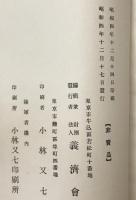 昭和四年十二月十四日印刷
昭和四年十二月十七日發行
【非賣品】
東京市牛込區若松町十番地
編輯兼發行者 財團法人 義濟會
東京市麴町區隼町四番地
印刷者 小林又七
陸軍省構內
印刷所 小林又七印刷所